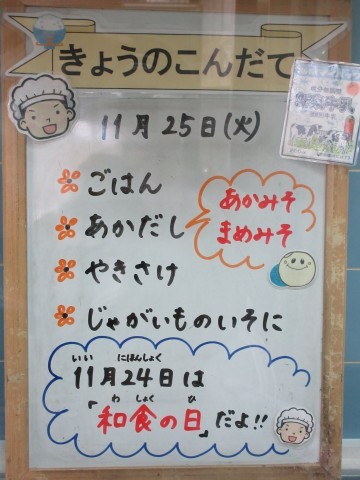 きょうのこんだて
11月25日(火)
ごはん
あかだし
あかみそ
まめみそ
やきさけ
じゃがいものいそに
いい にほんしょく
11月24日は
わ しょく ひ
「和食の日」だよ!!